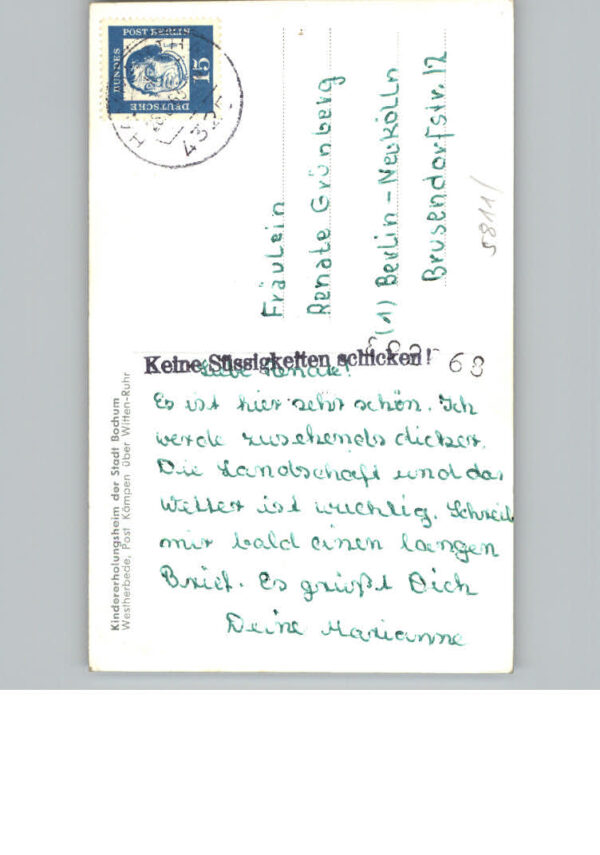 DEUTSCHE
BUNDES
POST BERLIN
15
432
Fräulein
Renate Grünberg
(1) Berlin-Neukölln
Brusendorfstr. 12
5811/
Keine Süssigkeiten schicken!
63
Liebe Renate!
Es ist hier sehr schön. Ich
werde zusehends dicker.
Die Landschaft und das
Wetter ist wuchtig. Schreib
mir bald einen langen
Brief. Es grüßt Dich
Deine Marianne
Kindererholungsheim der Stadt Bochum
Westherbede, Post Kämpen über Witten-Ruhr